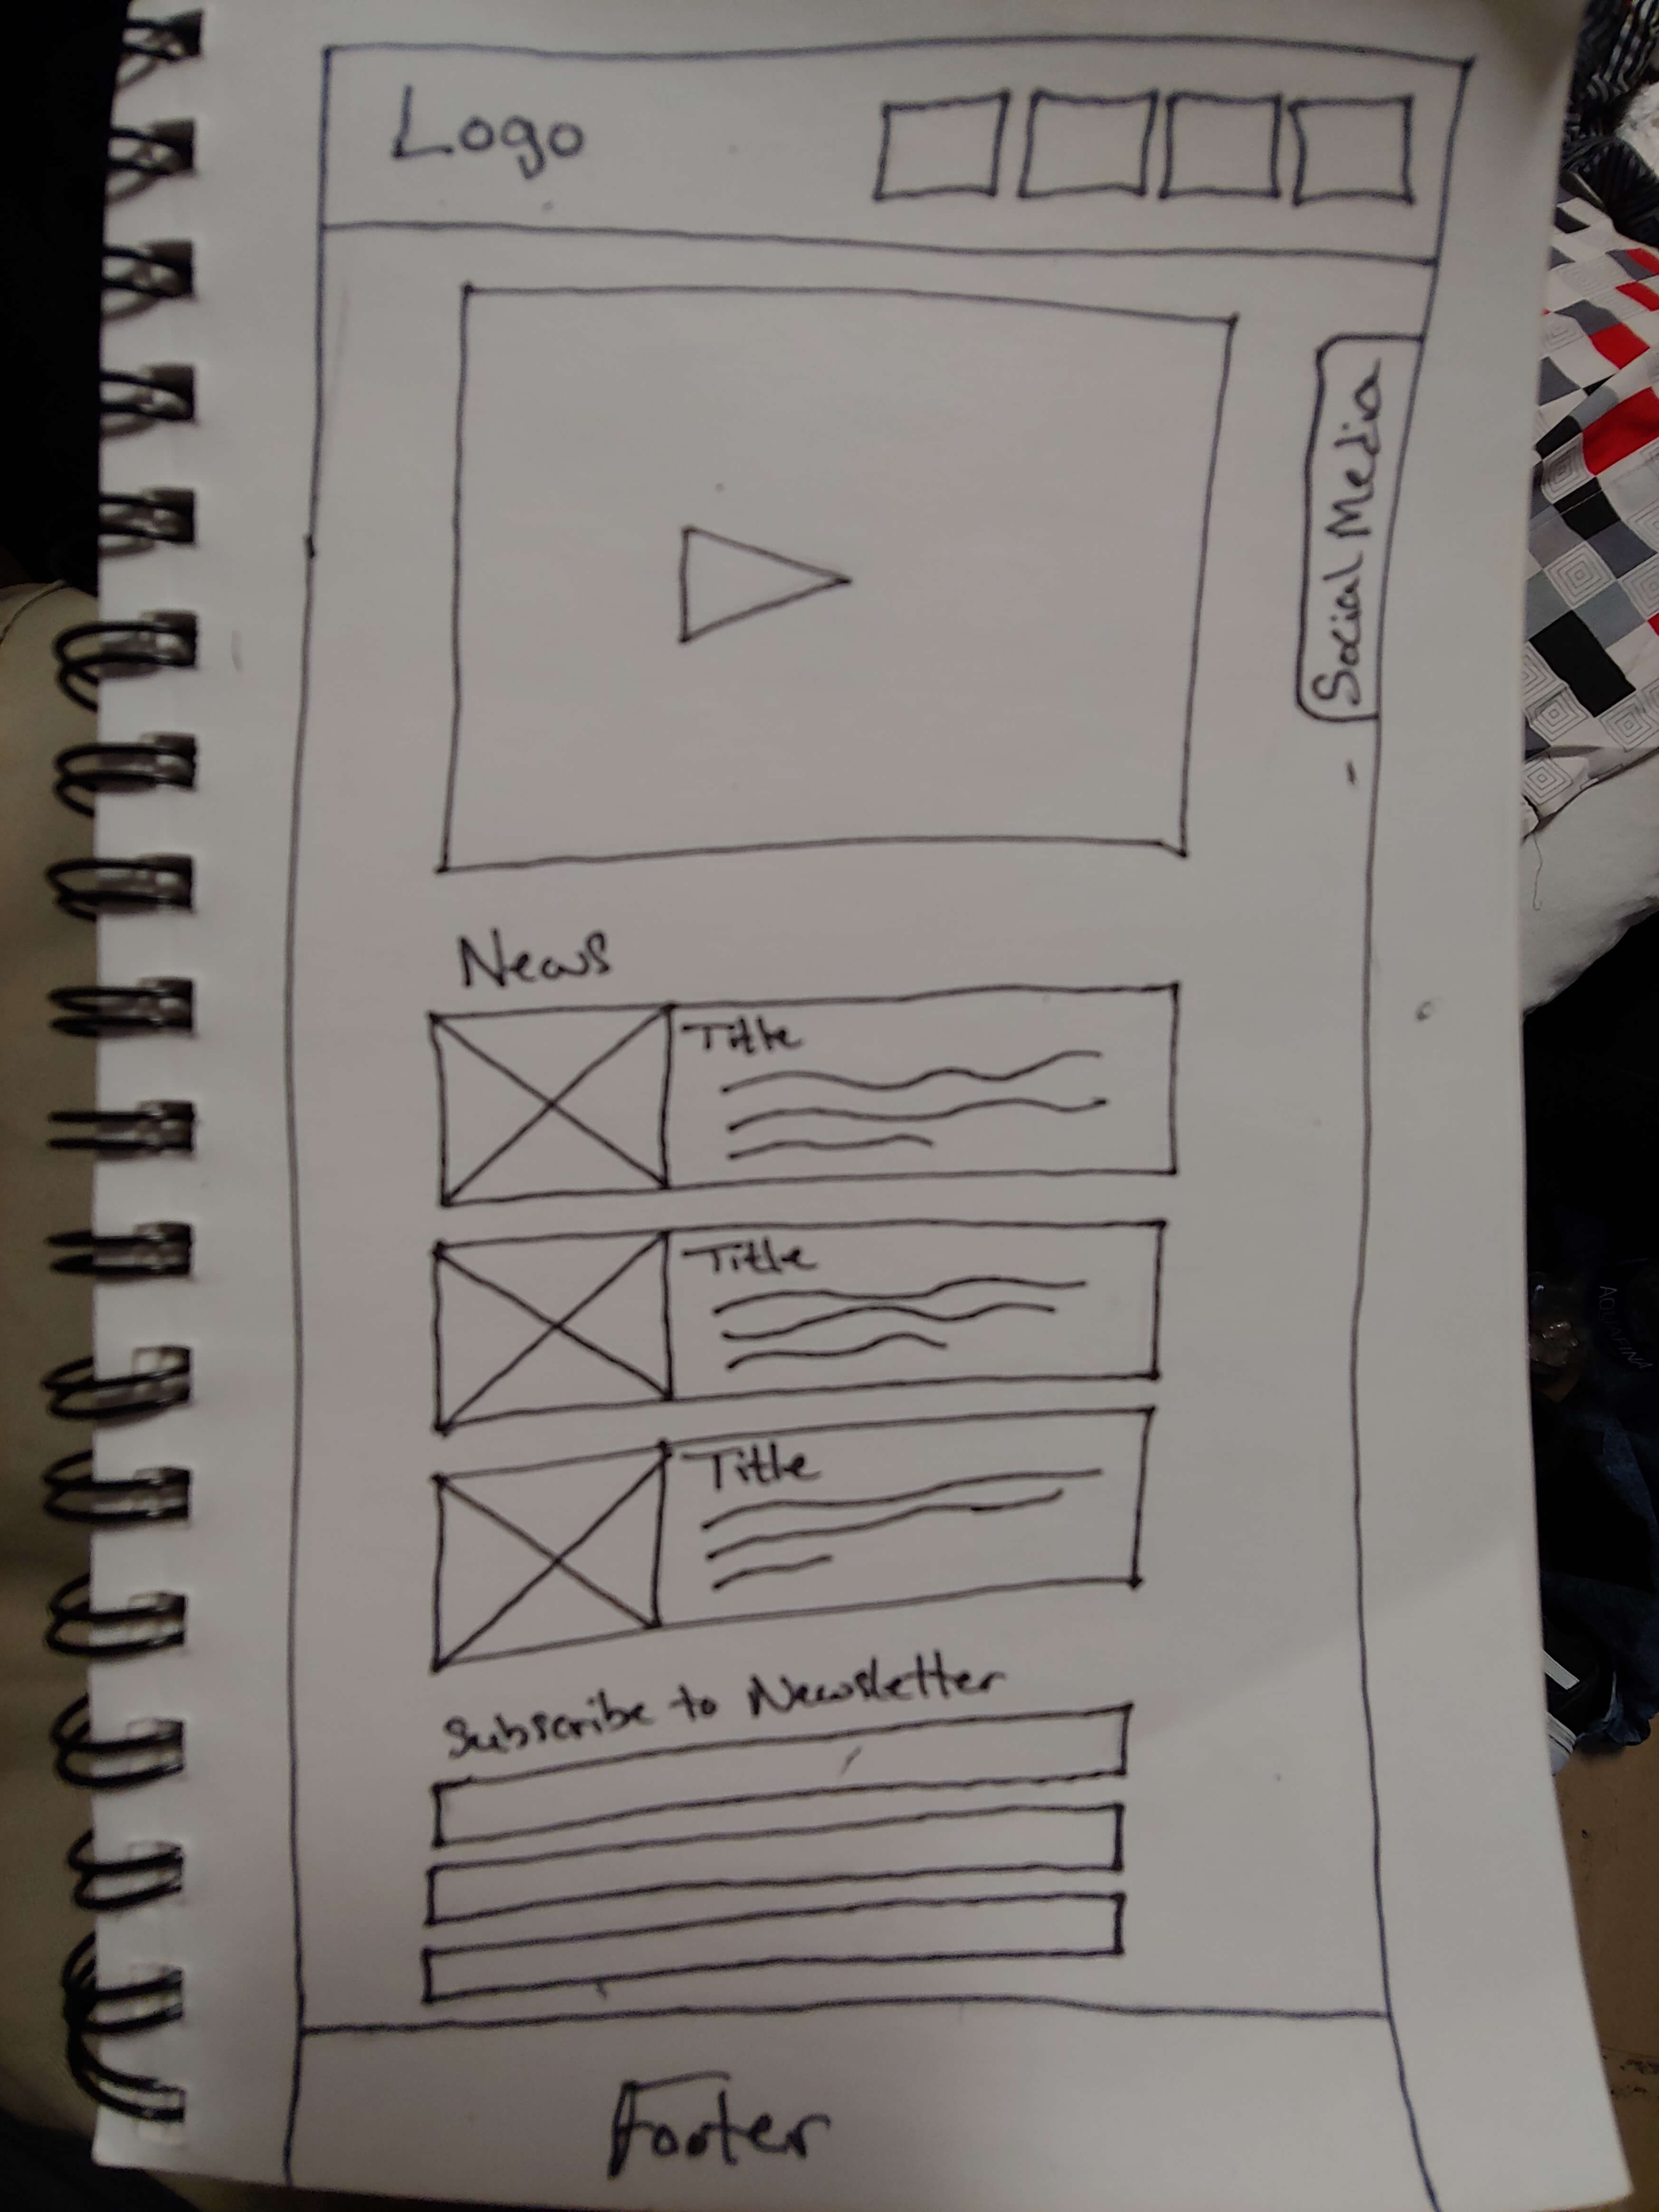 Logo
Social Media
News
Title
Title
Title
Subscribe to Newsletter
Footer
AQUAFINA